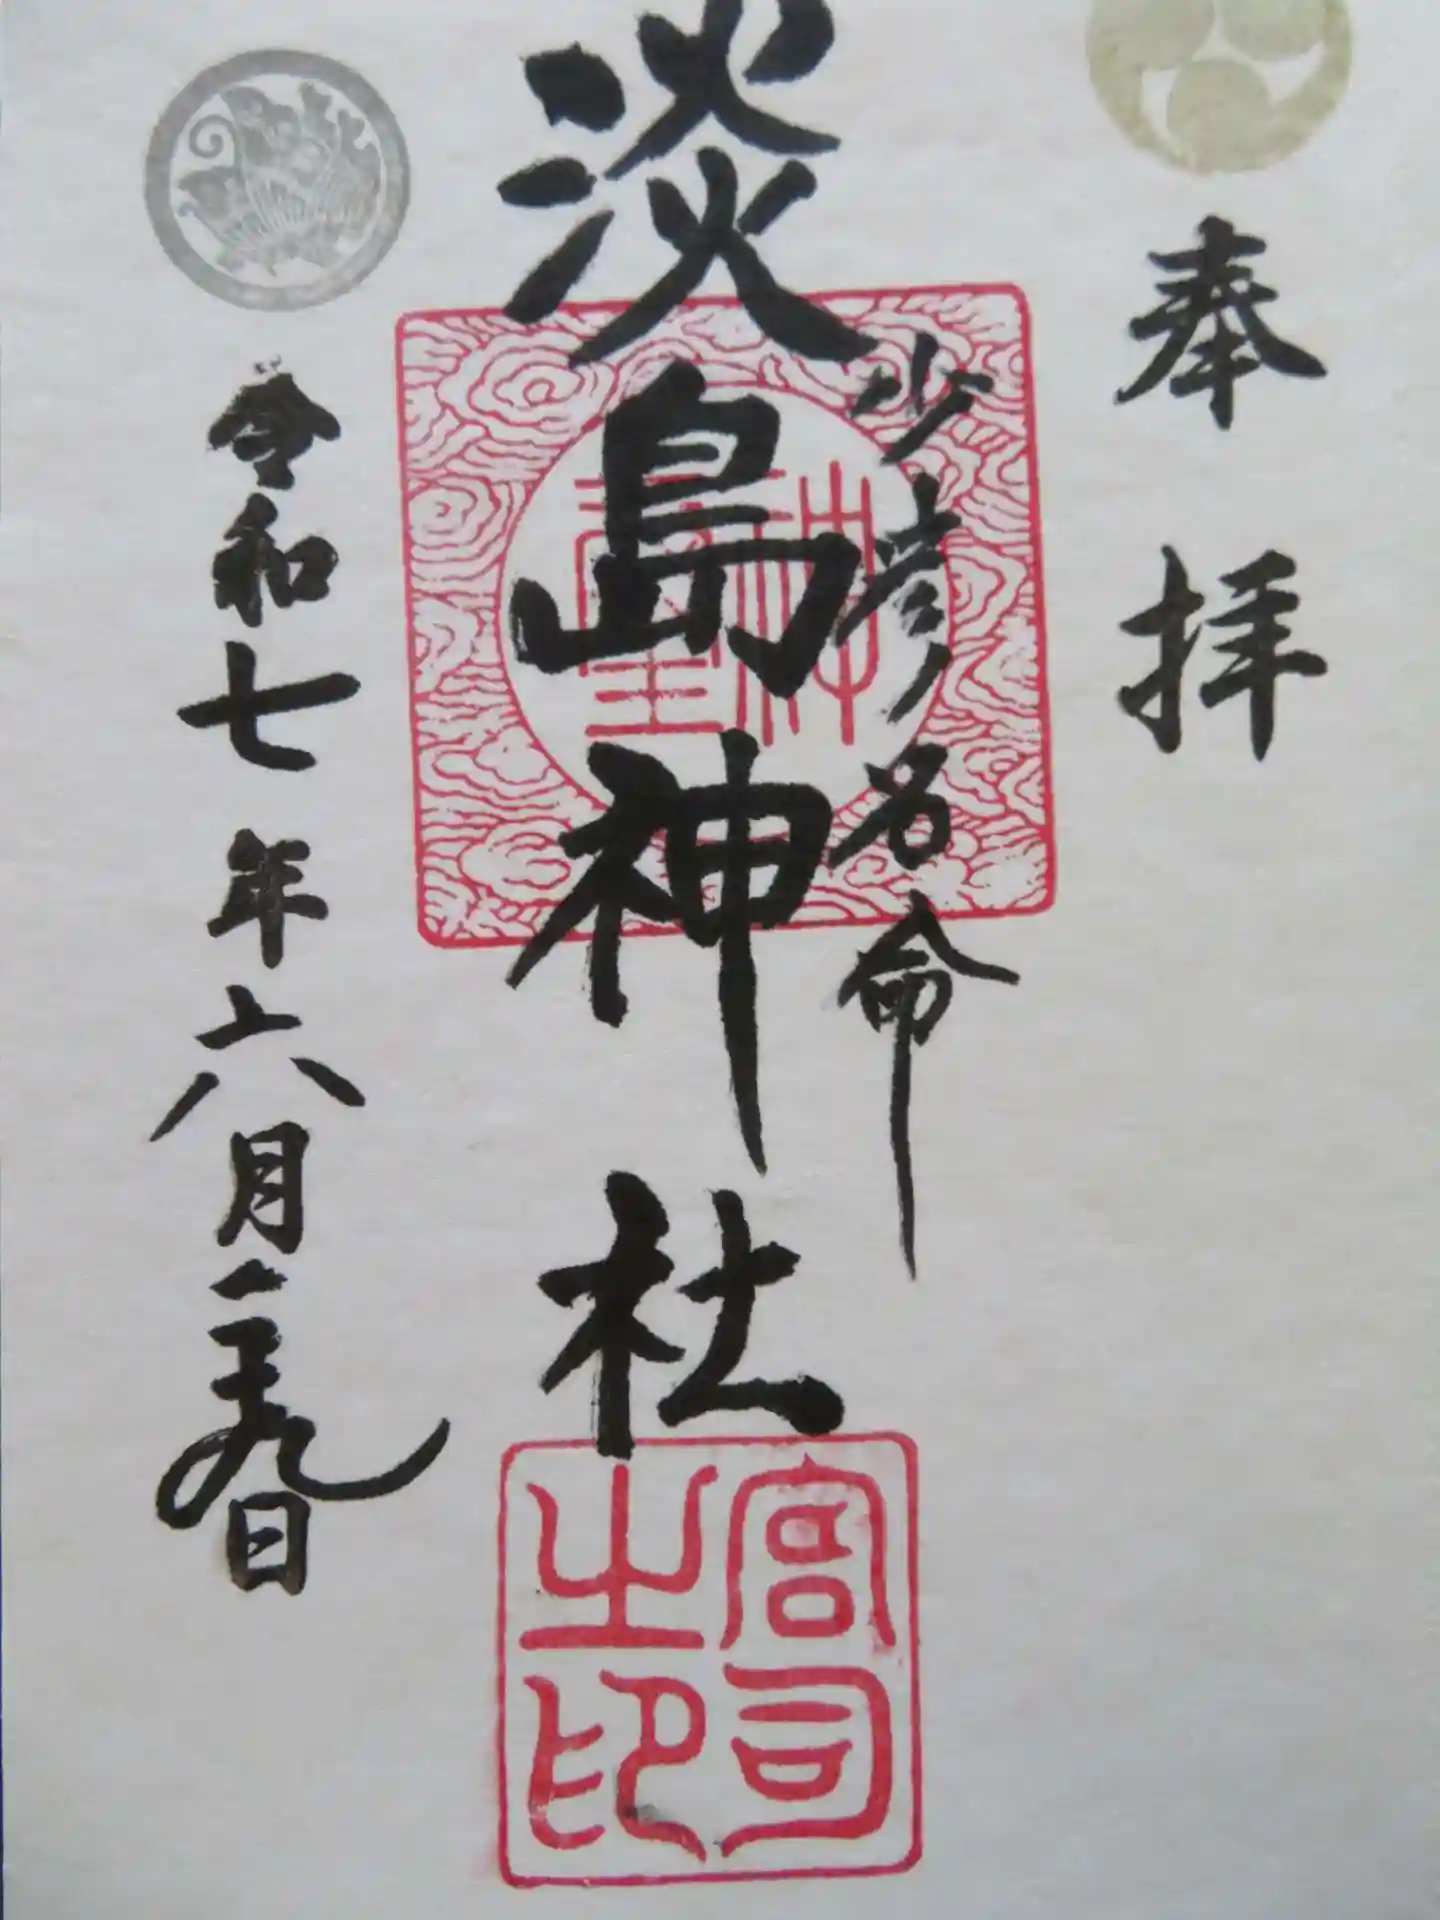 奉拝
少彦名命
淡島神社
神璽
宮司之印
令和七年六月二十九日